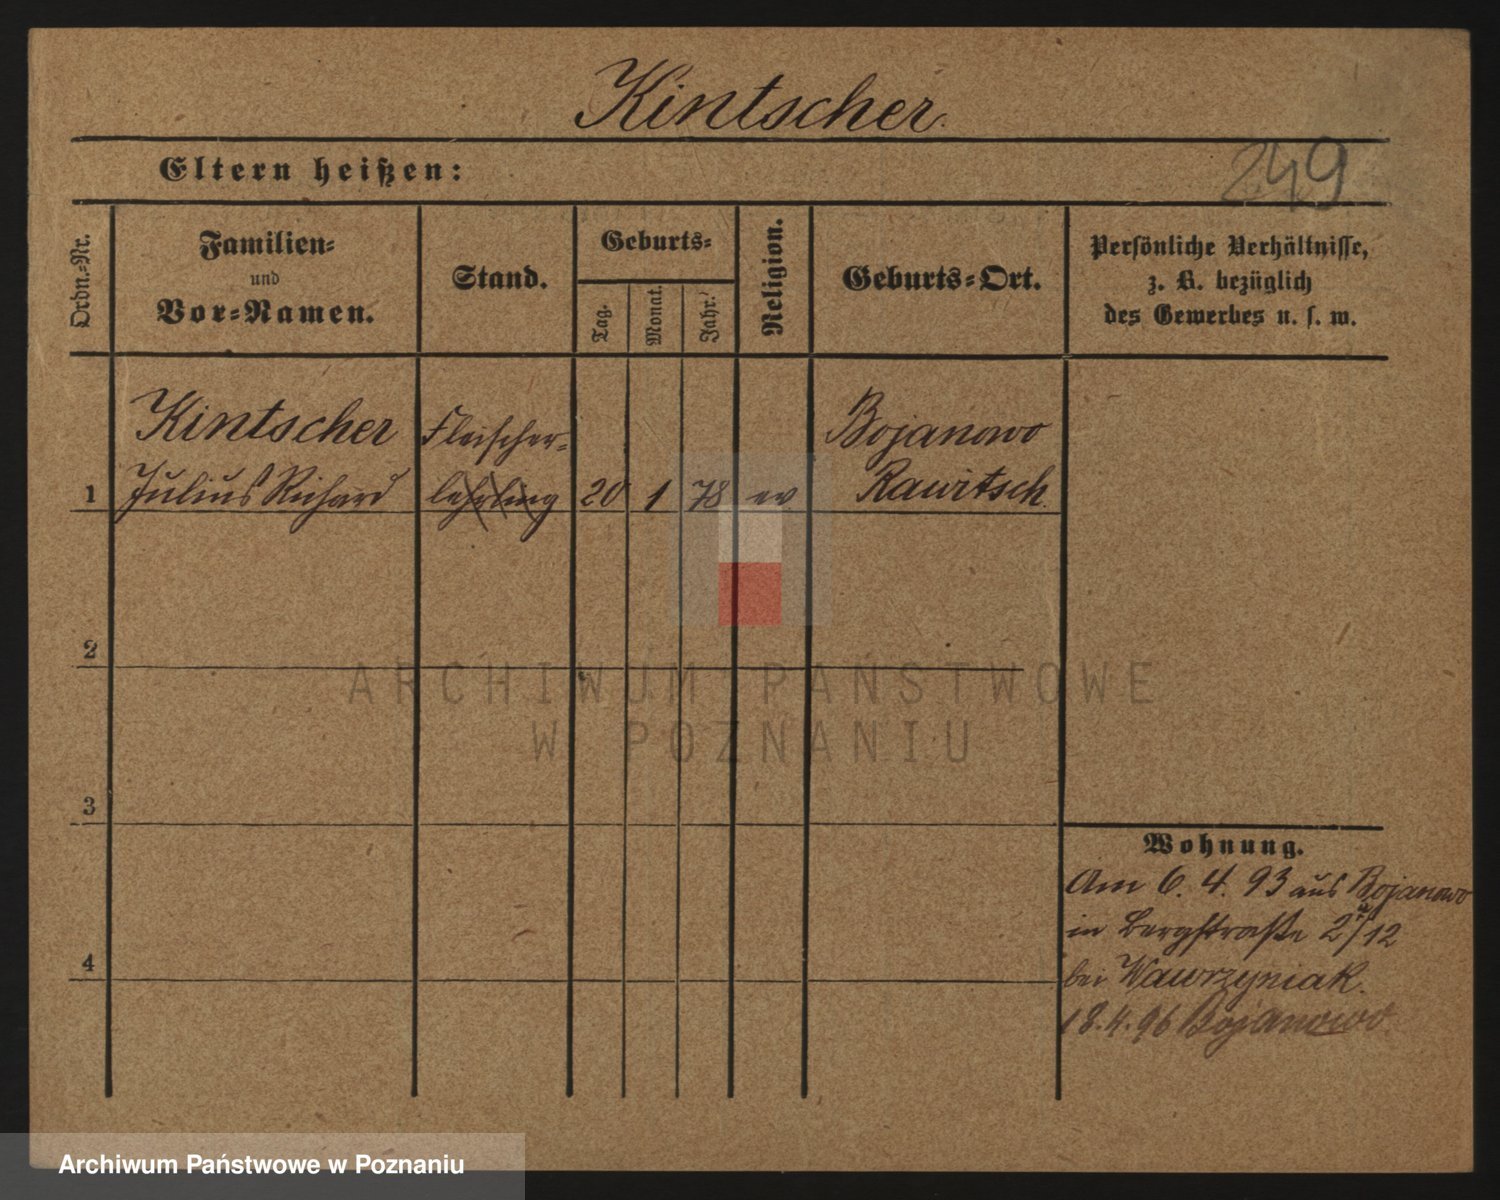 Kintscher.
Eltern heißen:
249
Ordn.-Nr.
Familien-
und
Vor-Namen.
Stand.
Geburts-
Tag.
Monat.
Jahr.
Religion.
Geburts-Ort.
Persönliche Verhältnisse,
z. B. bezüglich
des Gewerbes u. s. w.
Kintscher Fleischer- Bojanowo
1 Julius Richard lehrling 20 1 78 ev Rawitsch.
2
3
4
Wohnung.
Am 6. 4. 93 aus Bojanowo
in Bergstraße 2/12
bei Wawrzyniak.
18.4.96 Bojanowo
ARCHIWUM PAŃSTWOWE
W POZNANIU
Archiwum Państwowe w Poznaniu